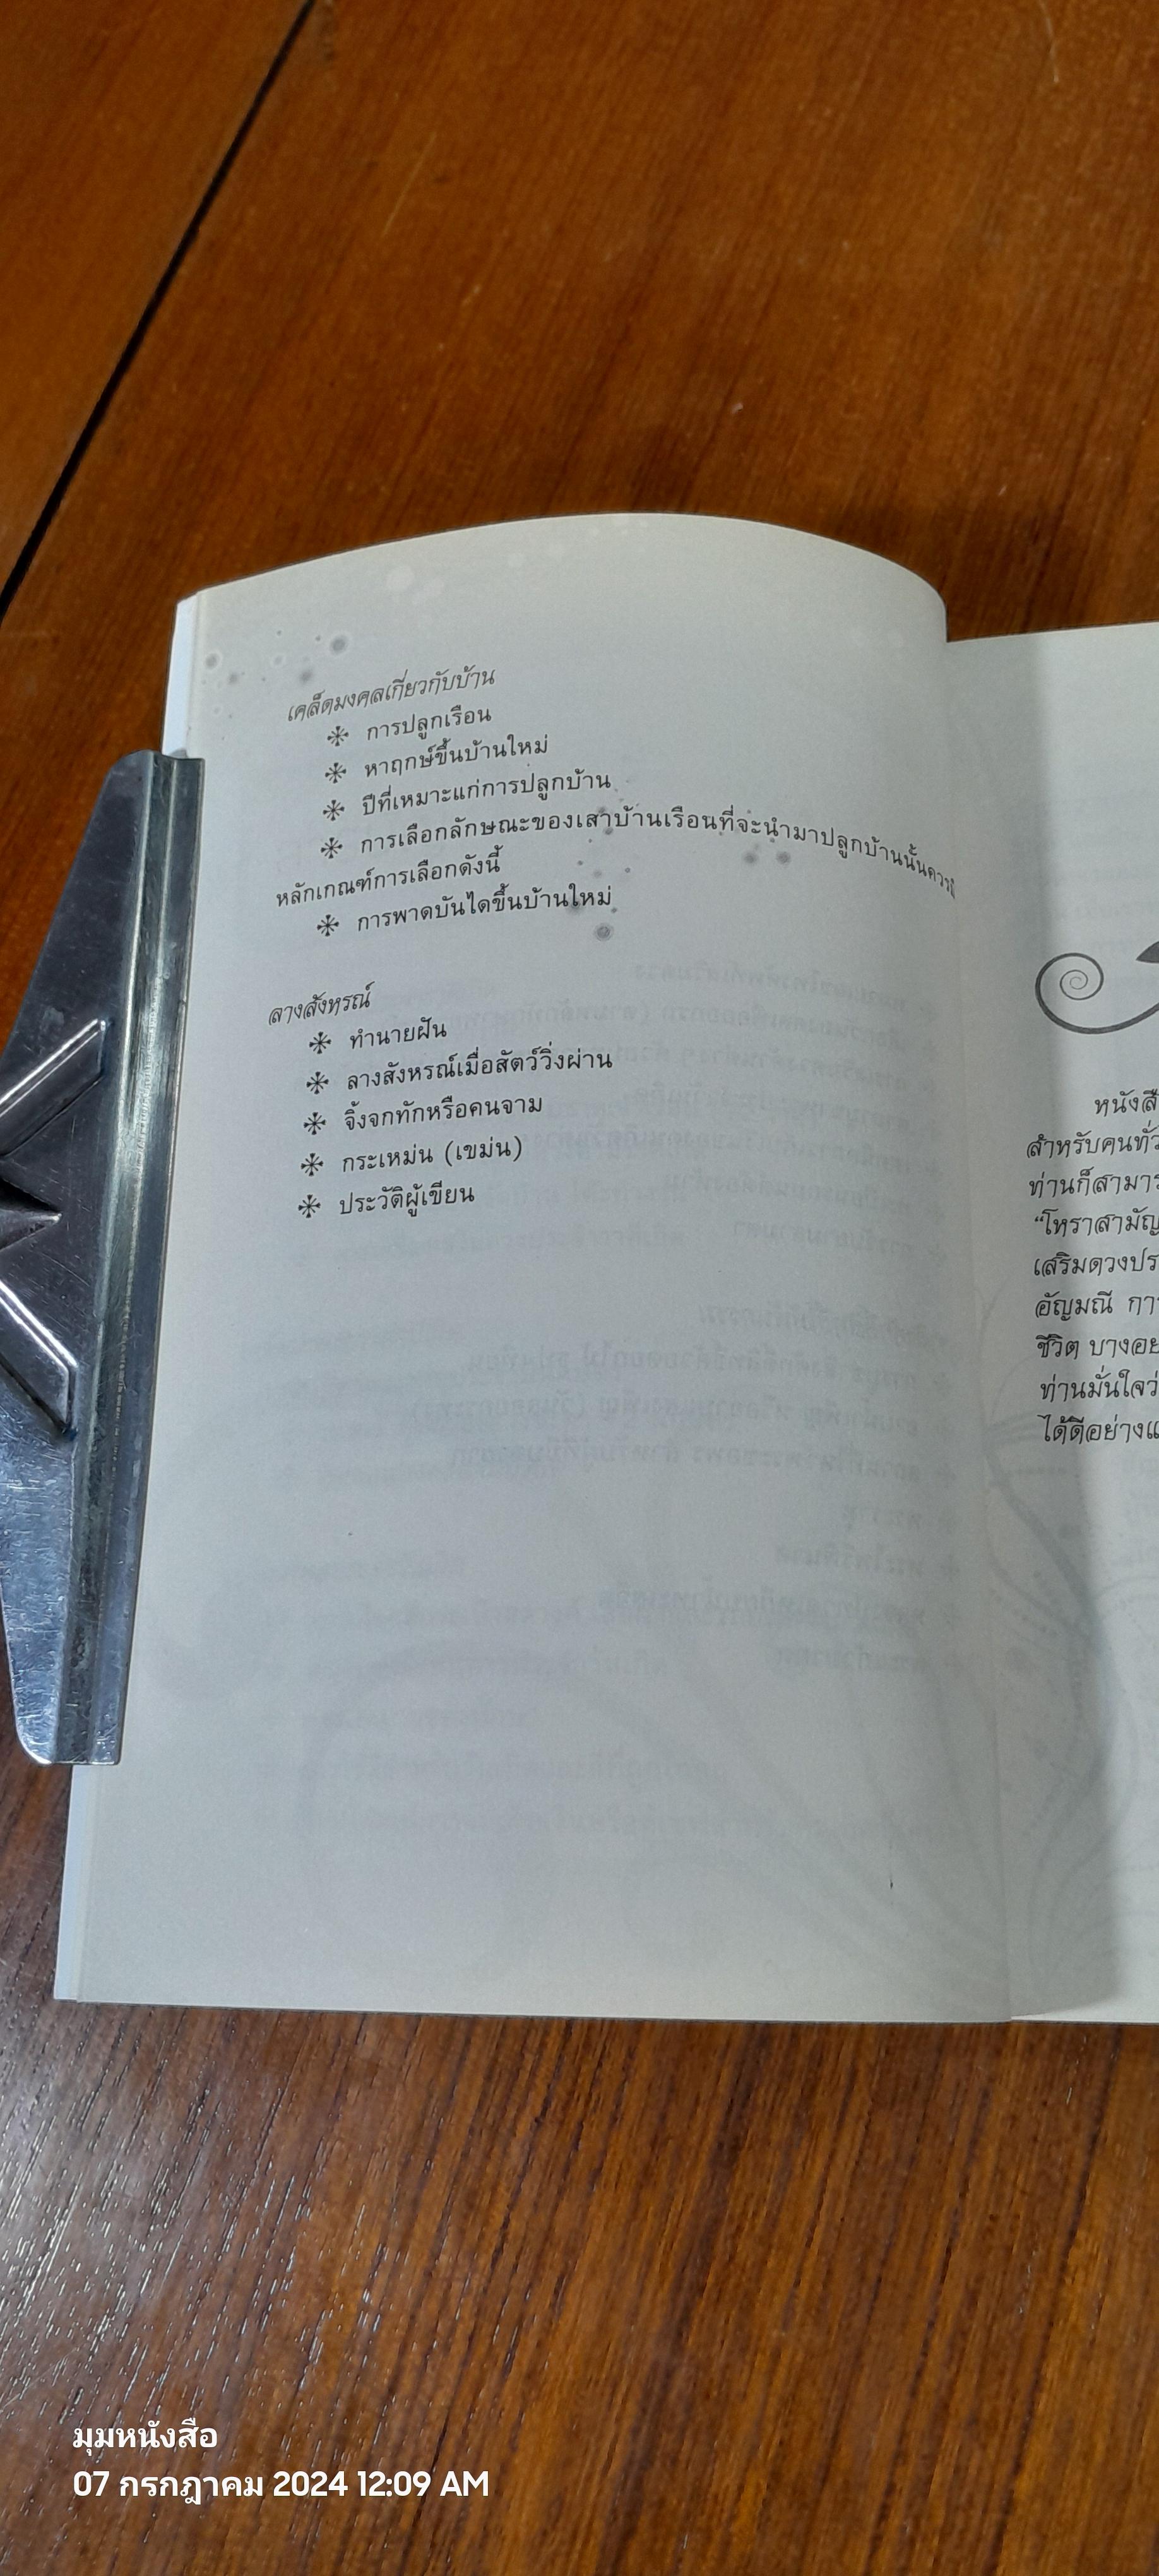 เคล็ดมงคลเกี่ยวกับบ้าน
การปลูกเรือน
หาฤกษ์ขึ้นบ้านใหม่
ปีที่เหมาะแก่การปลูกบ้าน
การเลือกลักษณะของเสาบ้านเรือนที่จะนำมาปลูกบ้านนั้นควร
หลักเกณฑ์การเลือกดังนี้
การพาดบันไดขึ้นบ้านใหม่
ลางสังหรณ์
ทำนายฝัน
ลางสังหรณ์เมื่อสัตว์วิ่งผ่าน
จิ้งจกทักหรือคนจาม
กระเหม่น (เขม่น)
ประวัติผู้เขียน
หนังสื
สำหรับคนทั่ว
ท่านก็สามาร
“โหราสามัญ
เสริมดวงปร
อัญมณี กา
ชีวิต บางอย
ท่านมั่นใจว่
ได้ดีอย่างแ
มุมหนังสือ
07 กรกฎาคม 2024 12:09 AM